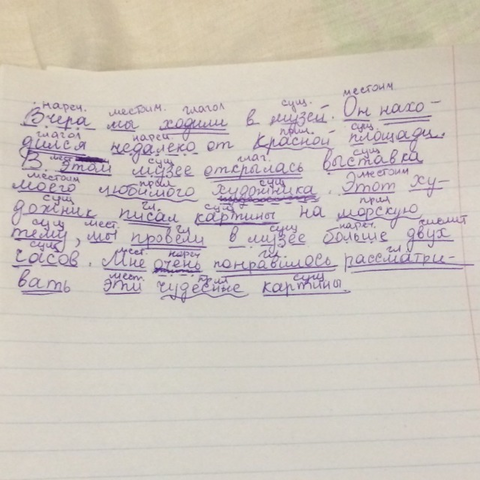 нареч. местоим. глагол сущ. местоим
Вчера мы ходили в музей. Он нахо-
глагол нареч прил. сущ.
дился недалеко от Красной площади.
мес сущ глаг. сущ
В этом музее открылась выставка
местоим прил сущ местоим
моего любимого художника. Этот ху-
сущ гл сущ прил
дожник писал картины на морскую
сущ мест. гл сущ нареч числит
тему, мы провели в музее больше двух
сущ мест. нареч гл. гл
часов. Мне очень понравилось рассматри-
мест прил сущ
вать эти чудесные картины.